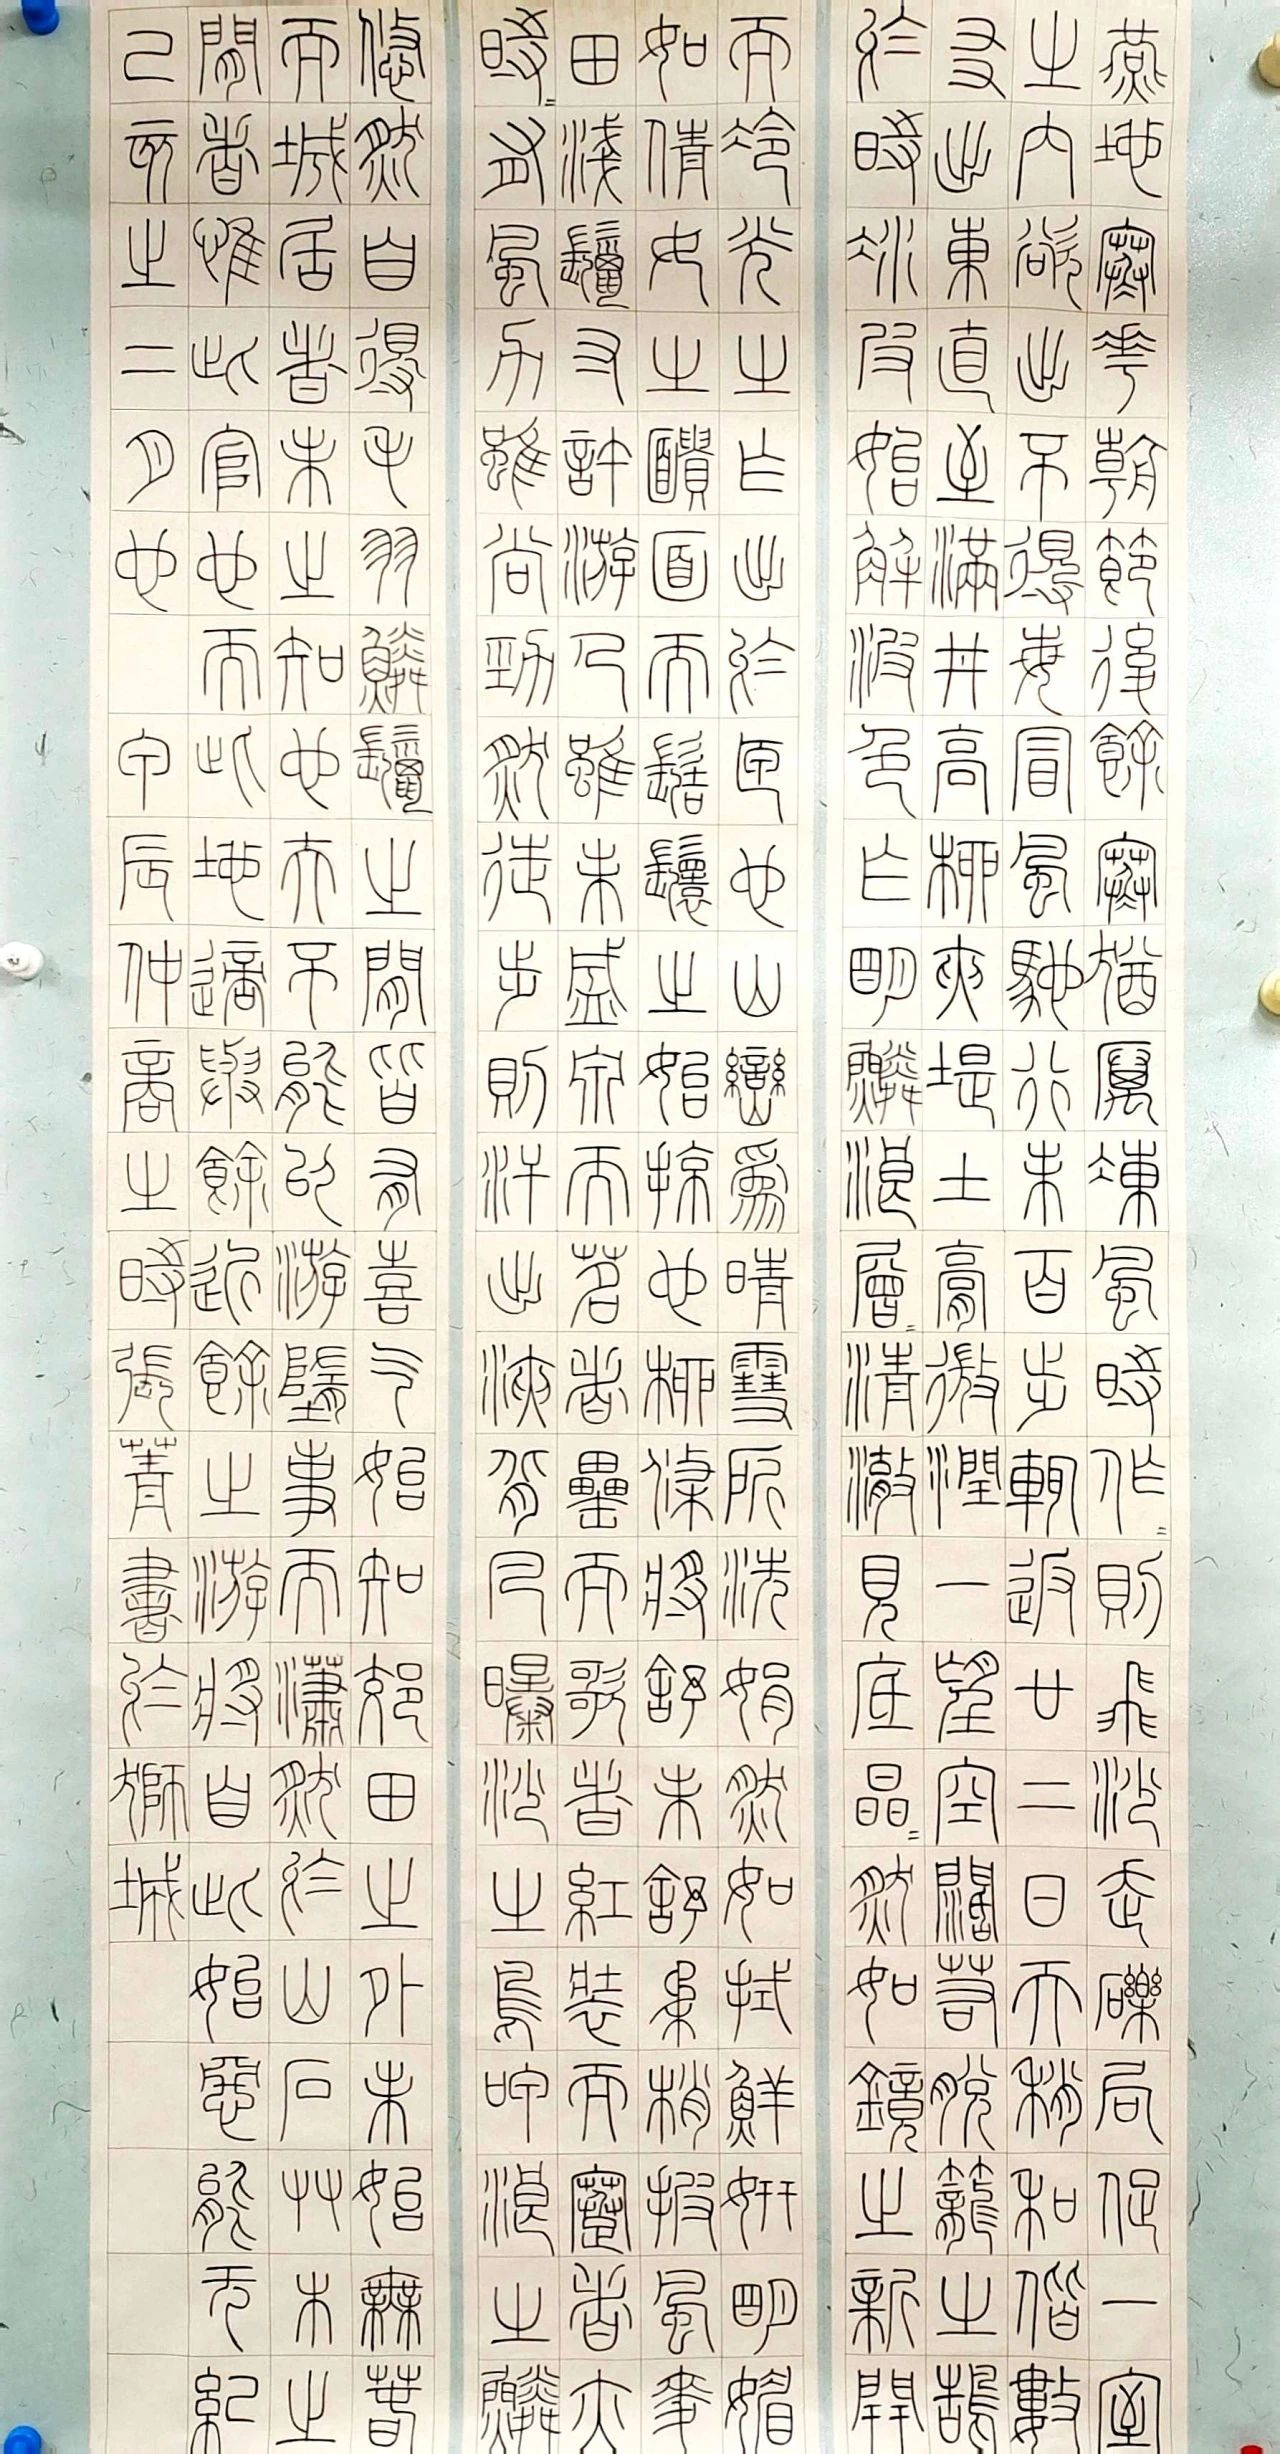 燕地寒花朝節後餘寒猶厲凍風時作=則飛沙走礫局促一室
之內欲出不得每冒風馳行未百步輒返廿二日天稍和偕數
友出東直至滿井高柳夾堤土膏微潤一望空闊若脫籠之鵠
於時冰皮始解波色乍明鱗浪層=清澈見底晶=然如鏡之新開
而冷光之乍出於匣也山巒為晴雪所洗娟然如拭鮮妍明媚
如倩女之靧面而髻鬟之始掠也柳條將舒未舒柔梢披風麥
田淺鬣寸許游人雖未盛泉而茗者罍而歌者紅裝而蹇者亦
時=有風力雖尚勁然徒步則汗出浹背凡曝沙之鳥呷浪之鱗
悠然自得毛羽鱗鬣之間皆有喜气始知郊田之外未始無春
而城居者未之知也夫不能以游墮事而瀟然於山石艸木之
間者惟此官也而此地適與餘近餘之游將自此始惡能无紀
己亥之二月也 甲辰仲商之時張菁書於獅城